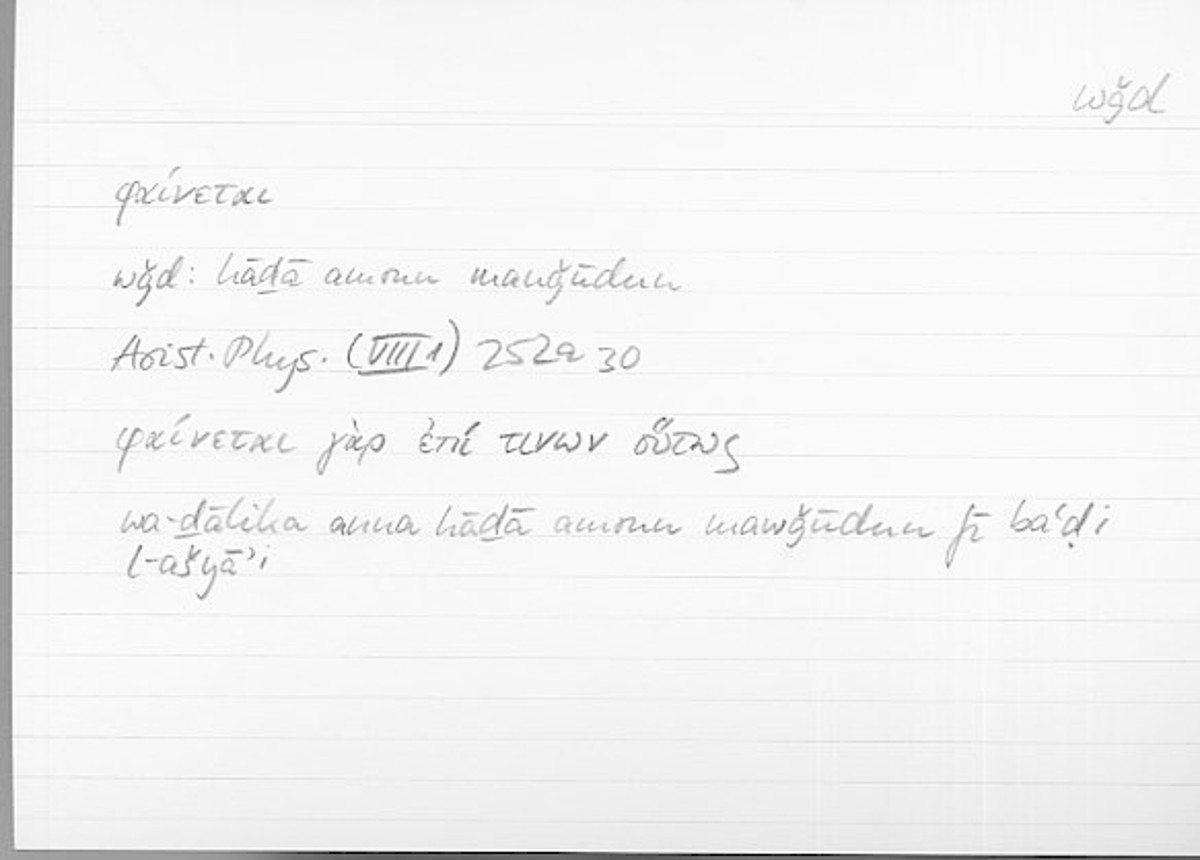 wǧd
φαίνεται
wǧd: hāḏā amrun mawǧūdun
Arist. Phys. (VIII 1) 252a 30
φαίνεται γὰρ ἐπί τινων οὕτως
wa-ḏālika anna hāḏā amrun mawǧūdun fī baʿḍi
l-ašyāʾi